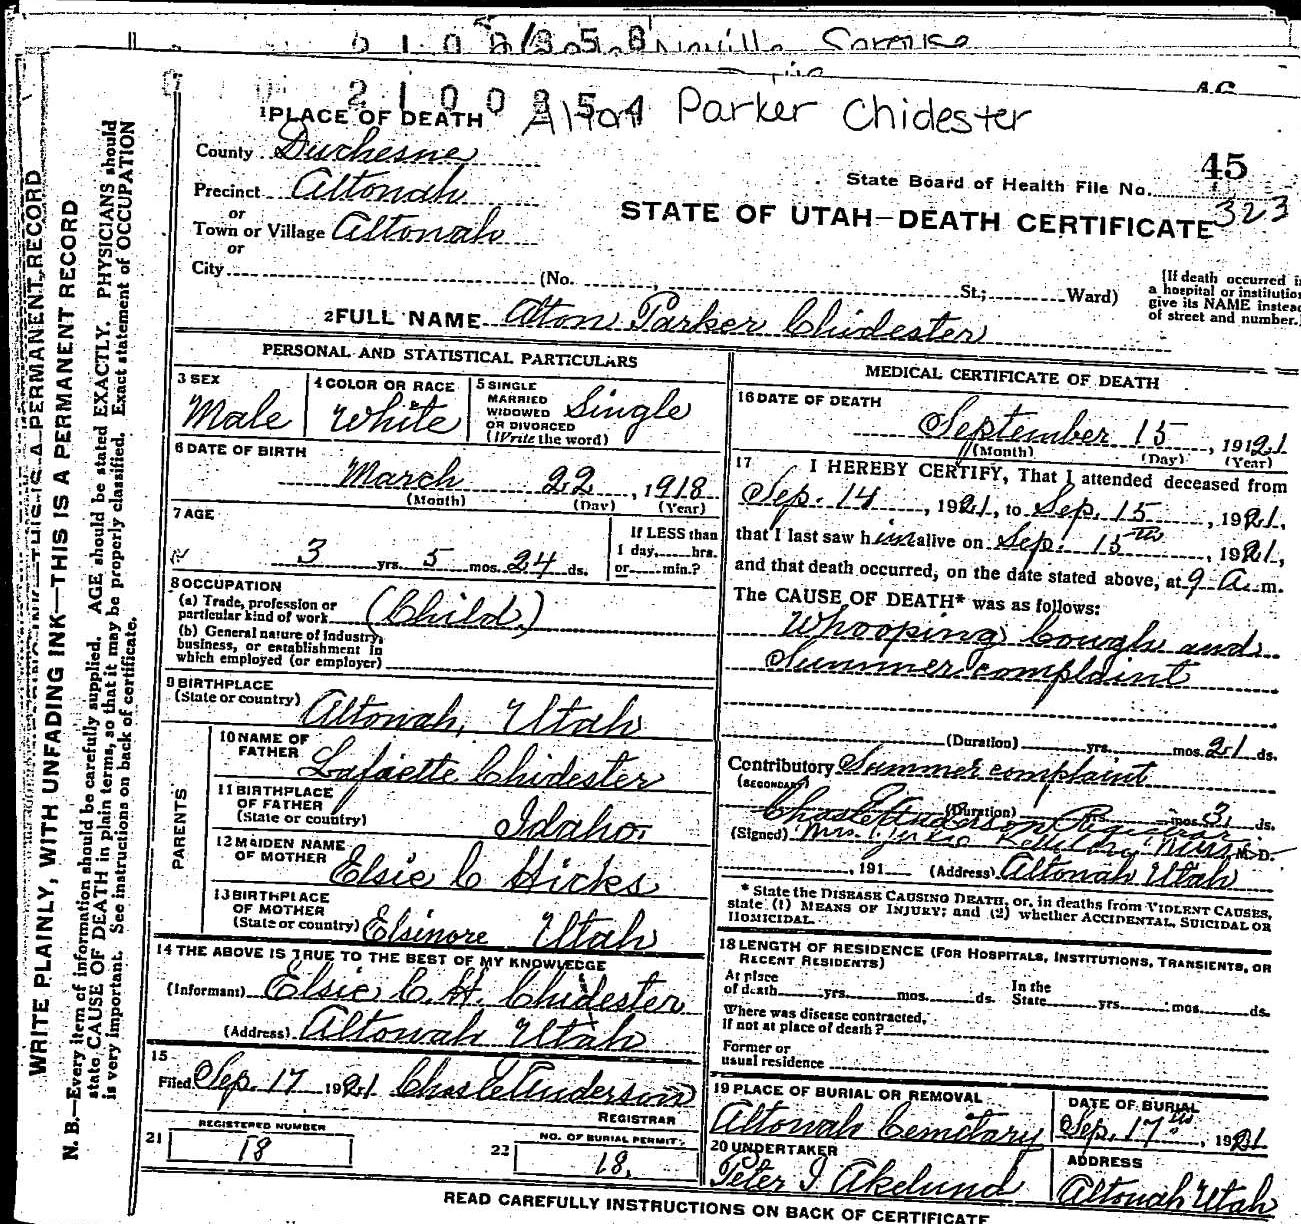 2100254
Alton Parker Chidester
1 PLACE OF DEATH
County Duchesne
45
Precinct Altonah
State Board of Health File No. 323
or
Town or Village Altonah
STATE OF UTAH—DEATH CERTIFICATE
or
City (No. , St.; Ward)
(If death occurred in
a hospital or institution
give its NAME instead
of street and number.)
2 FULL NAME Alton Parker Chidester
PERSONAL AND STATISTICAL PARTICULARS
3 SEX
Male
4 COLOR OR RACE
White
5 SINGLE
MARRIED
WIDOWED
OR DIVORCED
(Write the word)
Single
6 DATE OF BIRTH
March 22, 1918
(Month) (Day) (Year)
7 AGE
3 yrs. 5 mos. 24 ds.
If LESS than
1 day, hrs.
or min.?
8 OCCUPATION
(a) Trade, profession or
particular kind of work (Child.)
(b) General nature of Industry,
business, or establishment in
which employed (or employer)
9 BIRTHPLACE
(State or country) Altonah, Utah
PARENTS
10 NAME OF
FATHER Lafaiette Chidester
11 BIRTHPLACE
OF FATHER
(State or country) Idaho
12 MAIDEN NAME
OF MOTHER Elsie C Hicks
13 BIRTHPLACE
OF MOTHER
(State or country) Elsinore Utah
14 THE ABOVE IS TRUE TO THE BEST OF MY KNOWLEDGE
(Informant) Elsie C. H. Chidester
(Address) Altonah Utah
15
Filed Sep. 17 1921 Chas E Anderson
REGISTRAR
21 REGISTERED NUMBER
18
22 NO. OF BURIAL PERMIT.
18.
MEDICAL CERTIFICATE OF DEATH
16 DATE OF DEATH
September 15, 1921
(Month) (Day) (Year)
17 I HEREBY CERTIFY, That I attended deceased from
Sep. 14, 1921, to Sep. 15, 1921,
that I last saw him alive on Sep. 15th, 1921,
and that death occurred, on the date stated above, at 9 A. m.
The CAUSE OF DEATH* was as follows:
Whooping Cough and
Summer complaint
(Duration) yrs. mos. 21 ds.
Contributory Summer complaint
(SECONDARY)
(Duration) mos. 3 ds.
Chas E Anderson Registrar
(Signed) Mrs. Nurse M. D.
, 191 (Address) Altonah Utah
* State the DISEASE CAUSING DEATH, or, in deaths from VIOLENT CAUSES,
state (1) MEANS OF INJURY; and (2) whether ACCIDENTAL, SUICIDAL OR
HOMICIDAL.
18 LENGTH OF RESIDENCE (FOR HOSPITALS, INSTITUTIONS, TRANSIENTS, OR
RECENT RESIDENTS)
At place
of death yrs. mos. ds.
In the
State yrs. mos. ds.
Where was disease contracted,
If not at place of death?
Former or
usual residence
19 PLACE OF BURIAL OR REMOVAL
Altonah Cemetary
DATE OF BURIAL
Sep. 17th, 1921
20 UNDERTAKER
Peter I Akelund
ADDRESS
Altonah Utah
READ CAREFULLY INSTRUCTIONS ON BACK OF CERTIFICATE
WRITE PLAINLY, WITH UNFADING INK—THIS IS A PERMANENT RECORD
N. B.—Every item of information should be carefully supplied. AGE should be stated EXACTLY. PHYSICIANS should
state CAUSE OF DEATH in plain terms, so that it may be properly classified. Exact statement of OCCUPATION
is very important. See instructions on back of certificate.